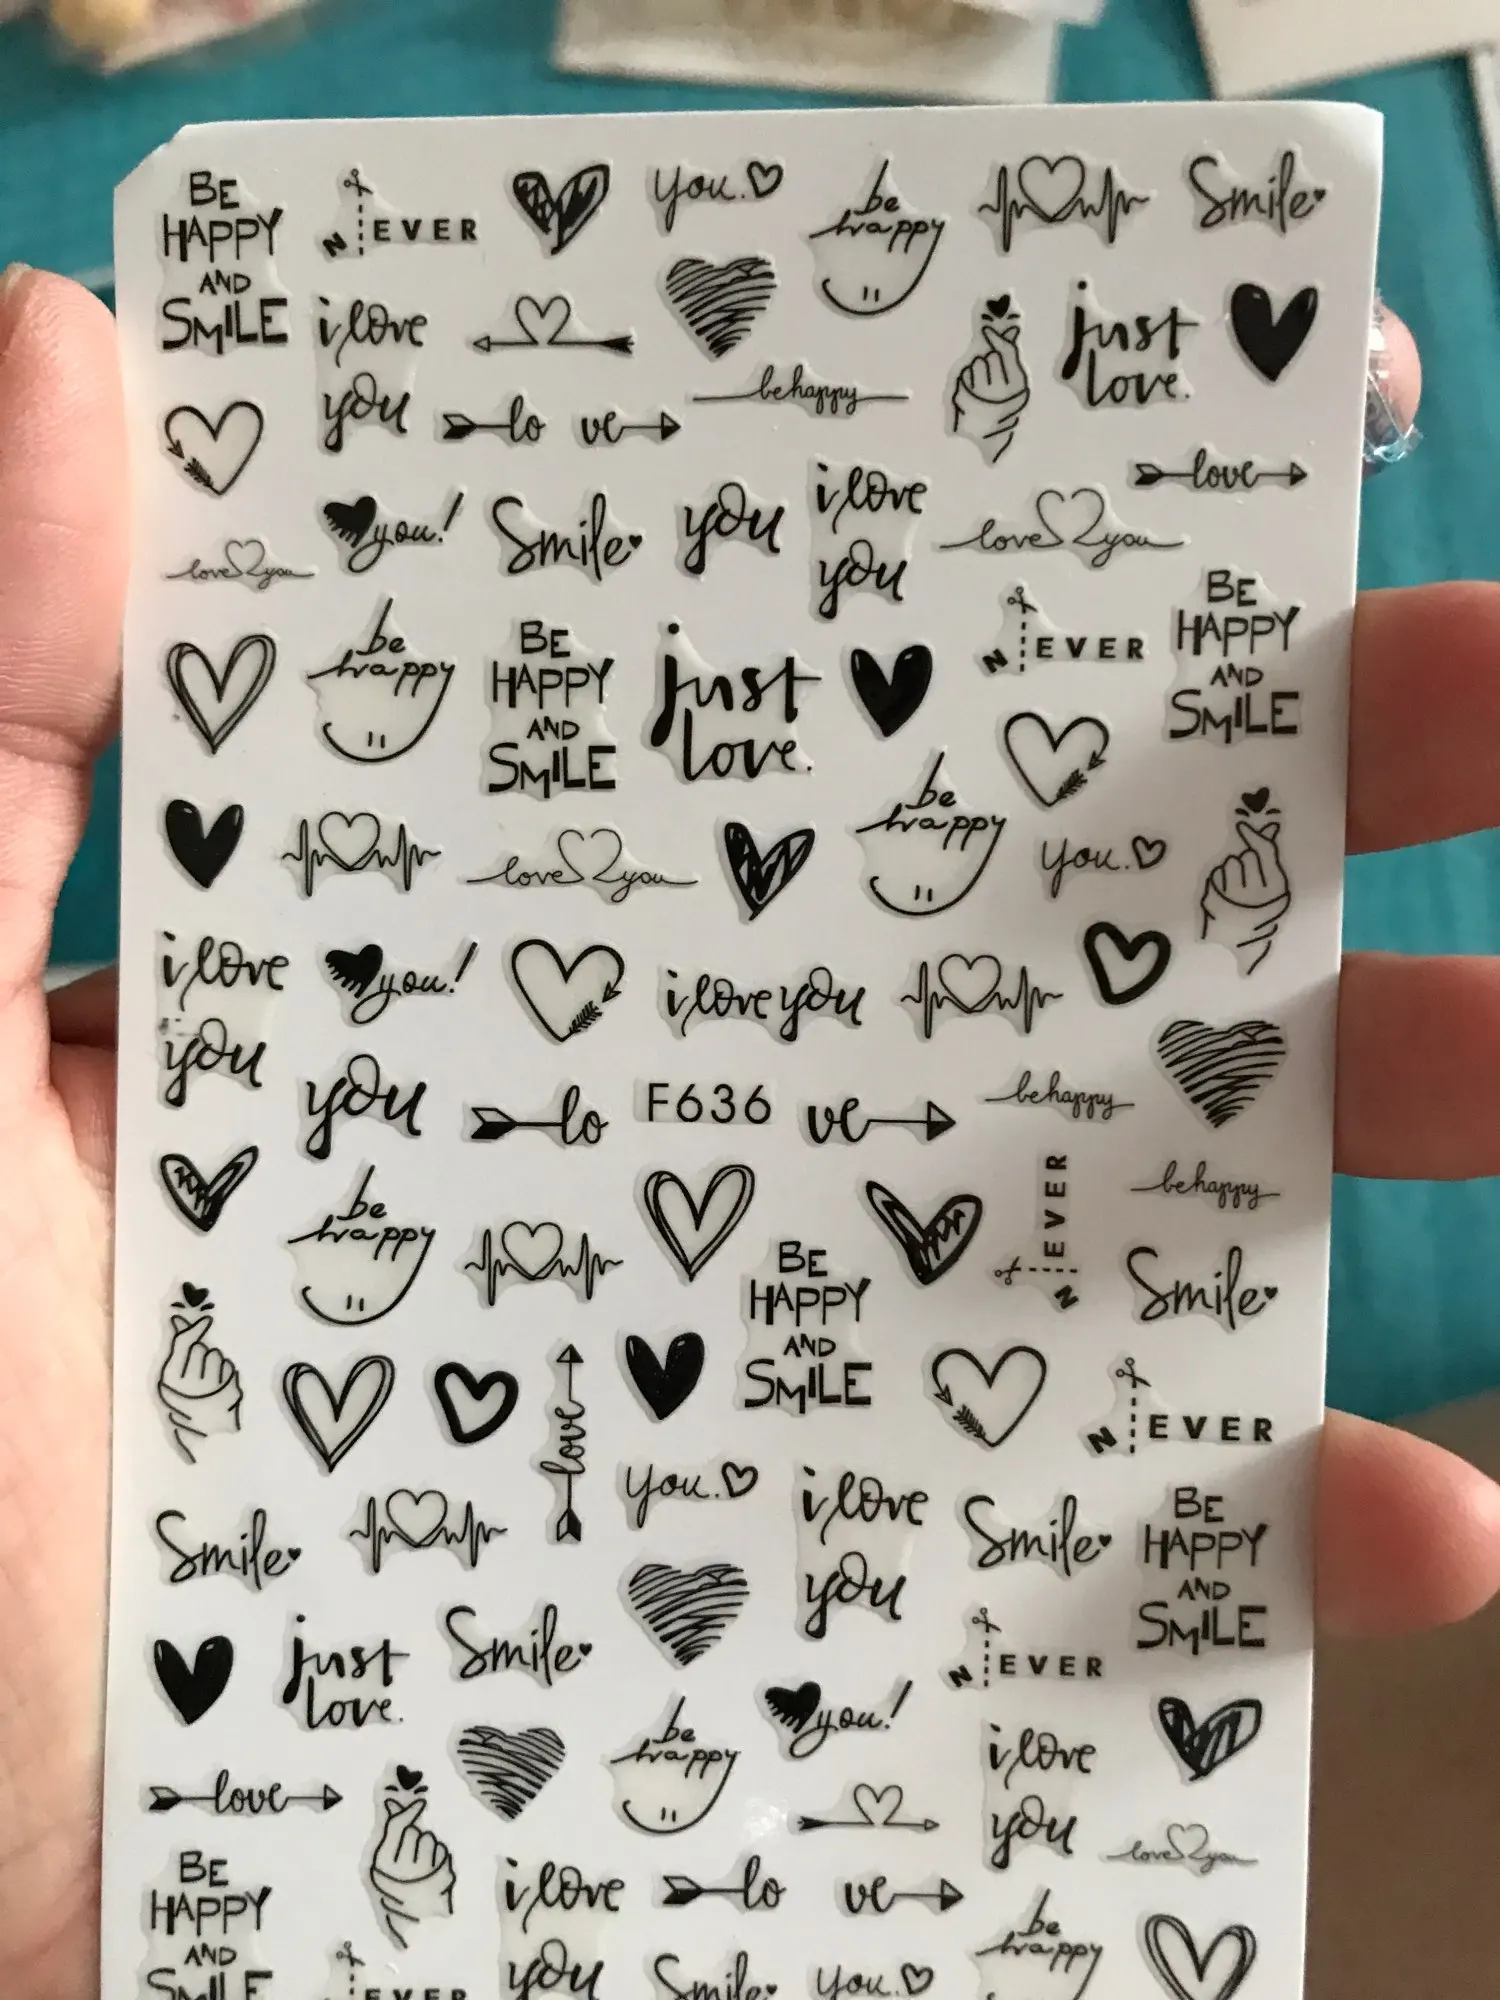 BE
HAPPY
AND
SMILE
NEVER
you.
be
happy
Smile
i love
you
just
love.
be happy
lo ve
love
you!
Smile
you
i love
you
love you
love you
be
happy
BE
HAPPY
AND
SMILE
just
love.
NEVER
BE
HAPPY
AND
SMILE
love you
be
happy
you.
i love
you
you!
i love you
you
lo
F636
ve
be happy
be
happy
BE
HAPPY
AND
SMILE
NEVER
be happy
Smile
love
NEVER
Smile
you.
i love
you
Smile
BE
HAPPY
AND
SMILE
just
love.
Smile
NEVER
be
happy
you!
i love
you
love
love you
BE
HAPPY
AND
SMILE
i love
you
lo ve
be
happy
NEVER
Smile
you.